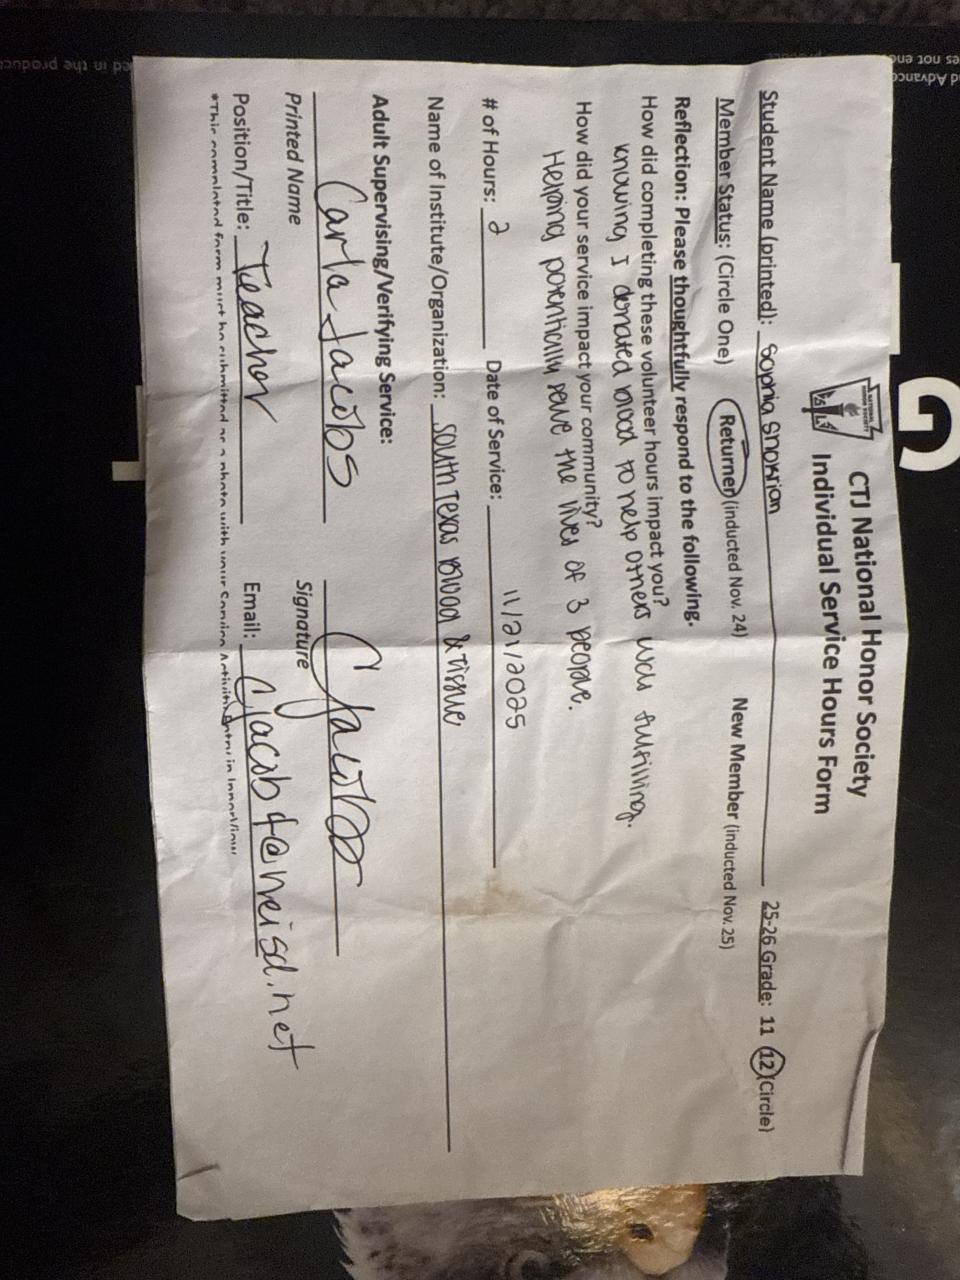 CTJ National Honor Society
Individual Service Hours Form
NATIONAL HONOR SOCIETY
Student Name (printed): Sophia Shokrian 25-26 Grade: 11 12 (Circle)
Member Status: (Circle One) Returner (inducted Nov. 24) New Member (inducted Nov. 25)
Reflection: Please thoughtfully respond to the following.
How did completing these volunteer hours impact you?
knowing I donated blood to help others was fulfilling.
How did your service impact your community?
Helping potentially save the lives of 3 people.
# of Hours: 2 Date of Service: 11/21/2025
Name of Institute/Organization: South Texas Blood & Tissue
Adult Supervising/Verifying Service:
Carla Jacobs CJacobs
Printed Name Signature
Position/Title: Teacher Email: Cjacob4@neisd.net
*This completed form must be submitted as a photo with your Service Activity Entry in Innerview
G